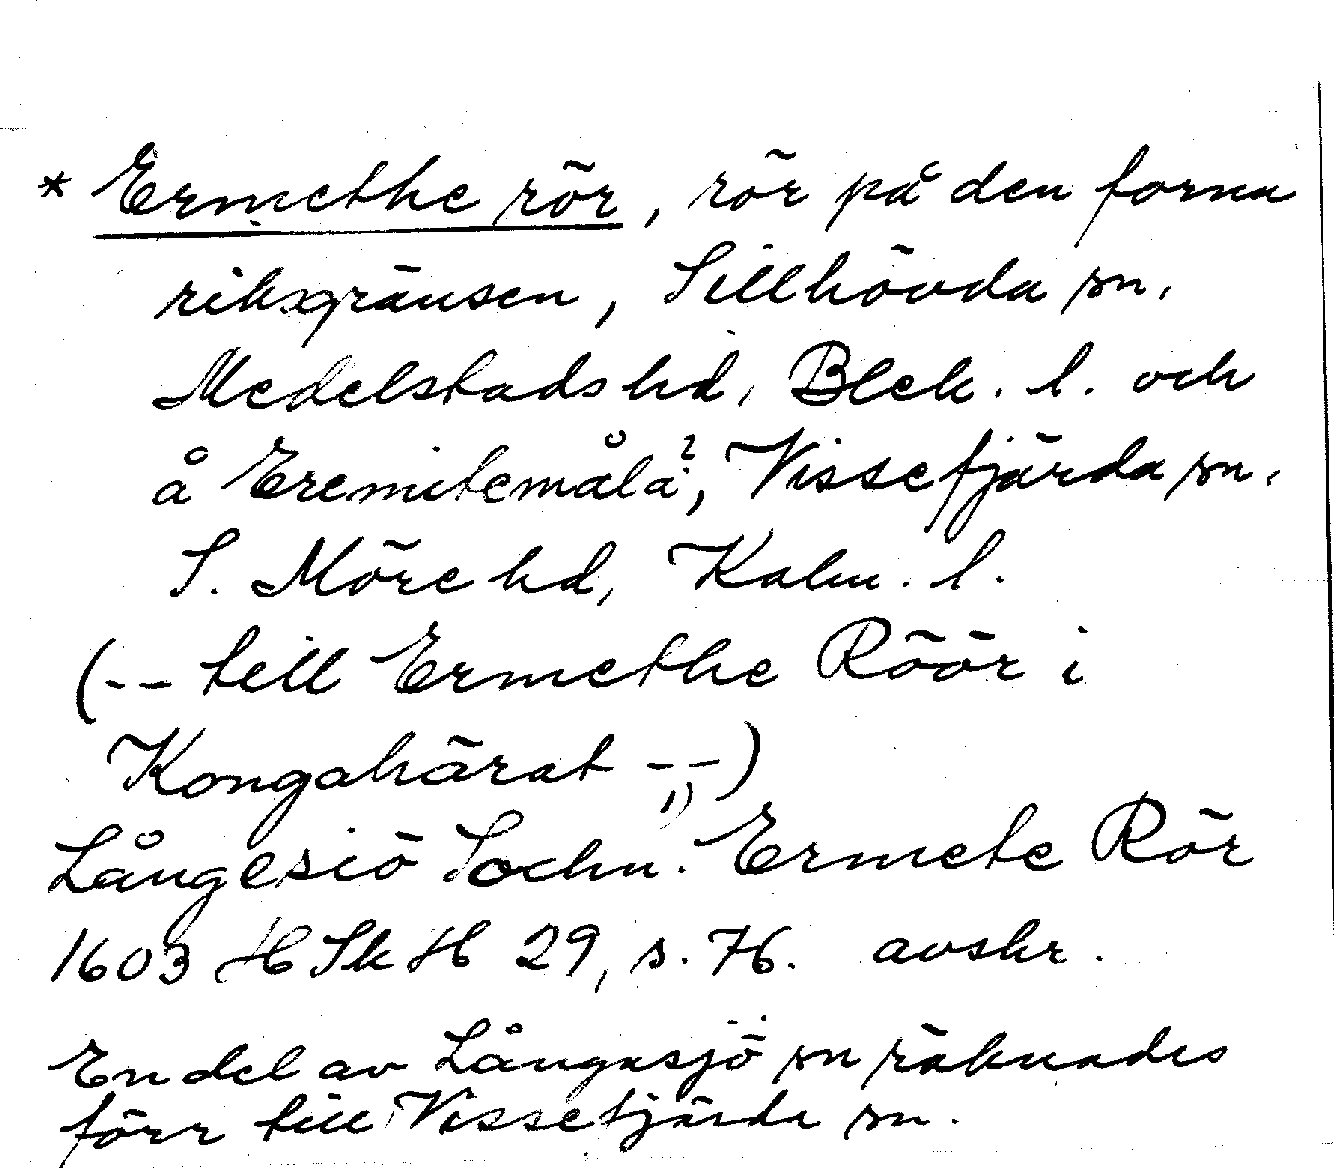 * Ermethe rör, rör på den forna
riksgränsen, Sillhövda sn,
Medelstads hd, Blek. l. och
å Eremitemåla?, Vissefjärda sn,
S. Möre hd, Kalm. l.
(-- till Ermethe Röör i
Kongahärat --)
Långesiö Sochn. Ermete Rör
1603 HSkH 29, s. 76. avskr.
En del av Långasjö sn räknades
förr till Vissefjärda sn.